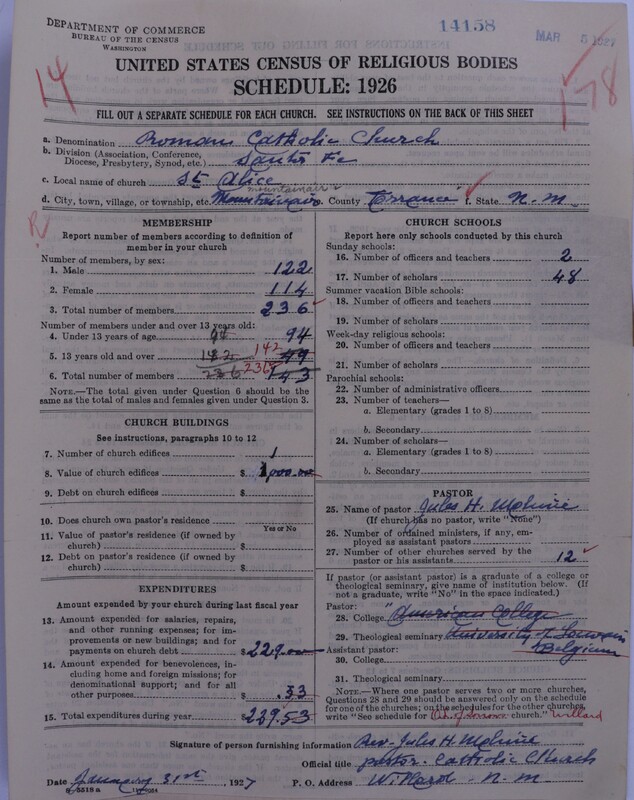 DEPARTMENT OF COMMERCE
BUREAU OF THE CENSUS
WASHINGTON
14158
MAR 5 1927
14
178
UNITED STATES CENSUS OF RELIGIOUS BODIES
SCHEDULE: 1926
FILL OUT A SEPARATE SCHEDULE FOR EACH CHURCH. SEE INSTRUCTIONS ON THE BACK OF THIS SHEET
a. Denomination Roman Catholic Church
b. Division (Association, Conference,
Diocese, Presbytery, Synod, etc.) Santa Fe
c. Local name of church St Alice
mountainair
d. City, town, village, or township, etc. Mountainair e. County Torrance f. State N. M.
R
MEMBERSHIP
Report number of members according to definition of
member in your church
Number of members, by sex:
1. Male 122
2. Female 114
3. Total number of members 236
Number of members under and over 13 years old:
4. Under 13 years of age 94 94
5. 13 years old and over 142 142 49
6. Total number of members 236 236 143
NOTE.—The total given under Question 6 should be
the same as the total of males and females given under Question 3.
CHURCH BUILDINGS
See instructions, paragraphs 10 to 12
7. Number of church edifices 1
8. Value of church edifices $ 1,000.00
9. Debt on church edifices $
10. Does church own pastor's residence
Yes or No
11. Value of pastor's residence (if owned by
church) $
12. Debt on pastor's residence (if owned by
church) $
EXPENDITURES
Amount expended by your church during last fiscal year
13. Amount expended for salaries, repairs,
and other running expenses; for im-
provements or new buildings; and for
payments on church debt $ 229.00
14. Amount expended for benevolences,
including home and foreign missions; for
denominational support; and for all
other purposes $ .53
15. Total expenditures during year $ 229.53
CHURCH SCHOOLS
Report here only schools conducted by this church
Sunday schools:
16. Number of officers and teachers 2
17. Number of scholars 48
Summer vacation Bible schools:
18. Number of officers and teachers
19. Number of scholars
Week-day religious schools:
20. Number of officers and teachers
21. Number of scholars
Parochial schools:
22. Number of administrative officers
23. Number of teachers—
a. Elementary (grades 1 to 8)
b. Secondary
24. Number of scholars—
a. Elementary (grades 1 to 8)
b. Secondary
PASTOR
25. Name of pastor Jules H. Molinie
(If church has no pastor, write "None")
26. Number of ordained ministers, if any, em-
ployed as assistant pastors
27. Number of other churches served by the
pastor or his assistants 12
If pastor (or assistant pastor) is a graduate of a college or
theological seminary, give name of institution below. (If
not a graduate, write "No" in the space indicated.)
Pastor:
28. College American College
29. Theological seminary University of Louvain
Assistant pastor: Belgium
30. College
31. Theological seminary
NOTE.—Where one pastor serves two or more churches,
Questions 28 and 29 should be answered only on the schedule
for one of the churches; on the schedules for the other churches,
write "See schedule for church." Willard
Signature of person furnishing information Rev. Jules H. Molinie
Official title pastor Catholic Church
Date January 31st, 1927 P. O. Address Willard - N. M.